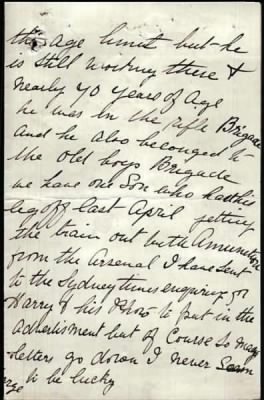 this age limit but he
is still working there &
nearly 70 years of age
he was in the rifle Brigade
And he also belonged to
the old boys Brigade
we have one Son who had his
leg off last April getting
the train out with Amunition
from the Arsenal I have sent
to the Sydney times enquiring for
Harry & his Photo to put in the
Advertisment but of Course so many
letters go down I never Seem
to be lucky